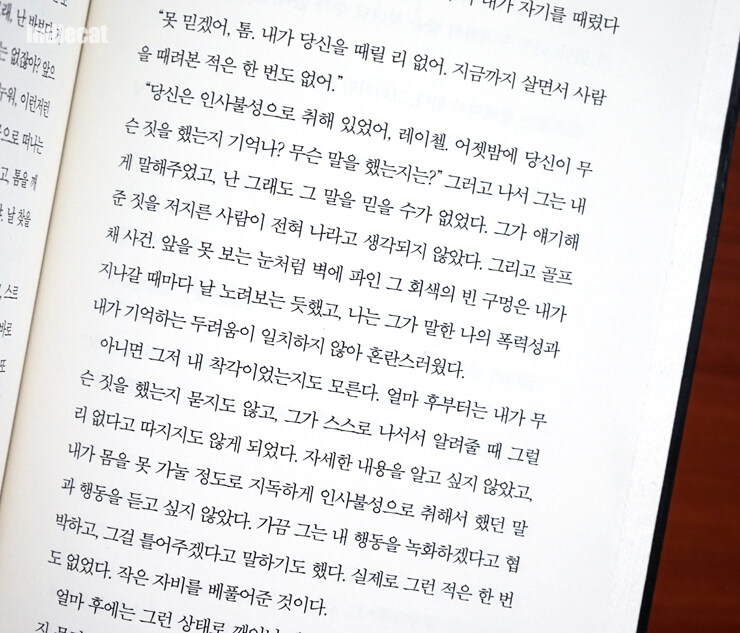 내가 자기를 때렸다
“못 믿겠어, 톰. 내가 당신을 때릴 리 없어. 지금까지 살면서 사람
을 때려본 적은 한 번도 없어.”
“당신은 인사불성으로 취해 있었어, 레이첼. 어젯밤에 당신이 무
슨 짓을 했는지 기억나? 무슨 말을 했는지는?” 그러고 나서 그는 내
게 말해주었고, 난 그래도 그 말을 믿을 수가 없었다. 그가 얘기해
준 짓을 저지른 사람이 전혀 나라고 생각되지 않았다. 그리고 골프
채 사건. 앞을 못 보는 눈처럼 벽에 파인 그 회색의 빈 구멍은 내가
지나갈 때마다 날 노려보는 듯했고, 나는 그가 말한 나의 폭력성과
내가 기억하는 두려움이 일치하지 않아 혼란스러웠다.
아니면 그저 내 착각이었는지도 모른다. 얼마 후부터는 내가 무
슨 짓을 했는지 묻지도 않고, 그가 스스로 나서서 알려줄 때 그럴
리 없다고 따지지도 않게 되었다. 자세한 내용을 알고 싶지 않았고,
내가 몸을 못 가눌 정도로 지독하게 인사불성으로 취해서 했던 말
과 행동을 듣고 싶지 않았다. 가끔 그는 내 행동을 녹화하겠다고 협
박하고, 그걸 틀어주겠다고 말하기도 했다. 실제로 그런 적은 한 번
도 없었다. 작은 자비를 베풀어준 것이다.
얼마 후에는 그런 상태로
indiecat
난 바보다
는 없잖아? 앞으
누워, 이런저런
으로 떠나는
고, 톰을 깨
날 찾을
스트
바로
또